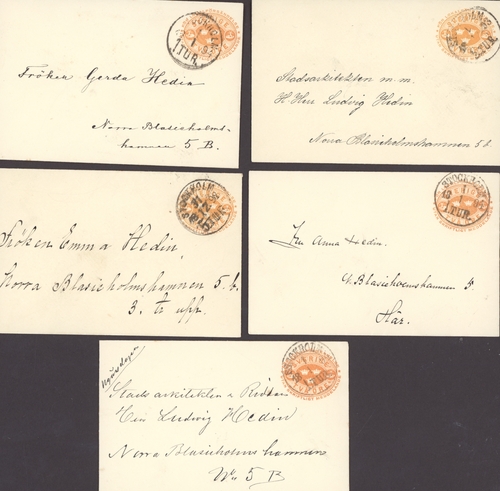 STOCKHOLM
1 TUR.
Fröken Gerda Hedin
Norra Blasieholms-
hamnen 5 B.
STOCKHOLM
1 TUR.
Stadsarkitekten m.m.
H Herr Ludvig Hedin
Norra Blasieholmshamnen 5 b.
STOCKHOLM
TUR
Fröken Emma Hedin,
Norra Blasieholmshamnen 5. b.
3. tr upp.
STOCKHOLM
TUR.
Fru Anna Hedin.
N. Blasieholmshamnen 5.
Här.
STOCKHOLM
SVERIGE
Stadsarkitekten
Herr Ludwig Hedin
Norra Blasieholmshamnen
No. 5 B